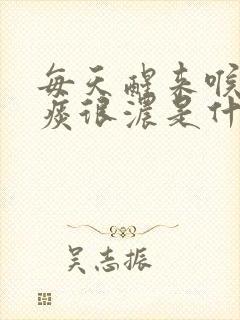 每天醒来喉
痰很浓是什
吴志振